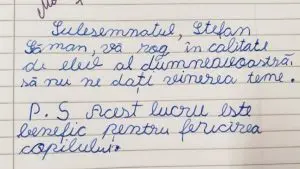 Sulesemnatul, Ștefan
Săman, vă rog în calitate
de elev al dumneavoastră,
să nu ne dați vinerea teme.
P. S Acest lucru este
benefic pentru fericirea
copilului.